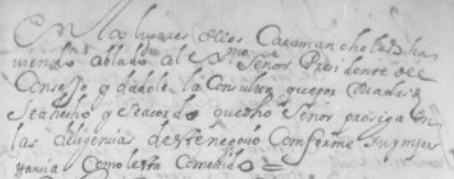 En los lugares de los Caraman cheles ha
viendo ablado al Exmo Señor Presidente del
Consejo y dadole la Consulta que por Madrid
Sea hecho y se acordo que dho Señor prosiga en
las diligencias deste negocio Conforme
Como lesta Cometido